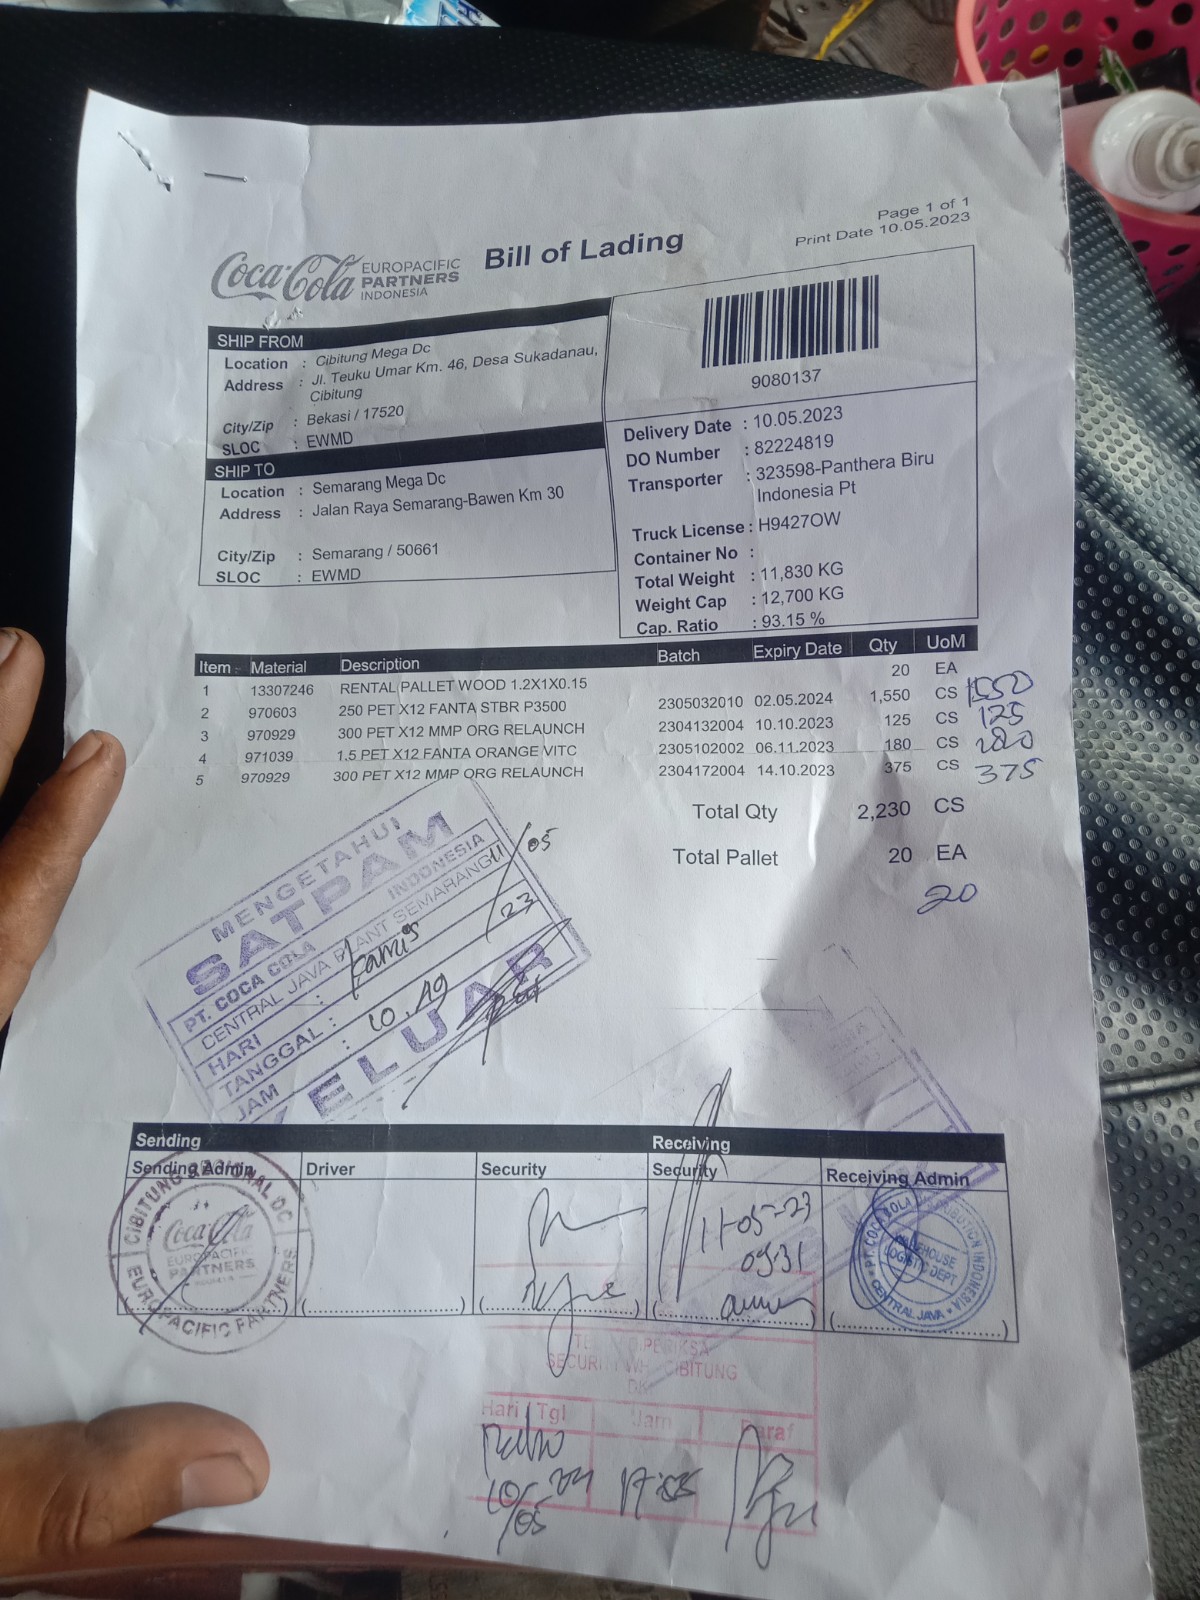 Page 1 of 1
Print Date 10.05.2023
Coca-Cola EUROPACIFIC PARTNERS INDONESIA
Bill of Lading
SHIP FROM
Location : Cibitung Mega Dc
Address : Jl. Teuku Umar Km. 46, Desa Sukadanau,
Cibitung
City/Zip : Bekasi / 17520
SLOC : EWMD
SHIP TO
Location : Semarang Mega Dc
Address : Jalan Raya Semarang-Bawen Km 30
City/Zip : Semarang / 50661
SLOC : EWMD
9080137
Delivery Date : 10.05.2023
DO Number : 82224819
Transporter : 323598-Panthera Biru
Indonesia Pt
Truck License : H9427OW
Container No :
Total Weight : 11,830 KG
Weight Cap : 12,700 KG
Cap. Ratio : 93.15 %
Item Material Description Batch Expiry Date Qty UoM
1 13307246 RENTAL PALLET WOOD 1.2X1X0.15 20 EA
2 970603 250 PET X12 FANTA STBR P3500 2305032010 02.05.2024 1,550 CS 1550
3 970929 300 PET X12 MMP ORG RELAUNCH 2304132004 10.10.2023 125 CS 125
4 971039 1.5 PET X12 FANTA ORANGE VITC 2305102002 06.11.2023 180 CS 180
5 970929 300 PET X12 MMP ORG RELAUNCH 2304172004 14.10.2023 375 CS 375
Total Qty 2,230 CS
Total Pallet 20 EA
20
MENGETAHUI
SATPAM
PT. COCA COLA INDONESIA
CENTRAL JAVA PLANT SEMARANG
HARI : Kamis
TANGGAL : 11/05 23
JAM : 10.19
KELUAR
Sending Receiving
Sending Admin Driver Security Security Receiving Admin
CIBITUNG REGIONAL DC
Coca-Cola
EUROPACIFIC
PARTNERS
EUROPACIFIC PARTNERS
11-05-23
05.31
PT. COCA COLA DISTRIBUTION INDONESIA
WAREHOUSE
LOGISTIC DEPT
CENTRAL JAVA
DIPERIKSA
SECURITY WH CIBITUNG
Hari / Tgl Jam Paraf
Rabu
10/05